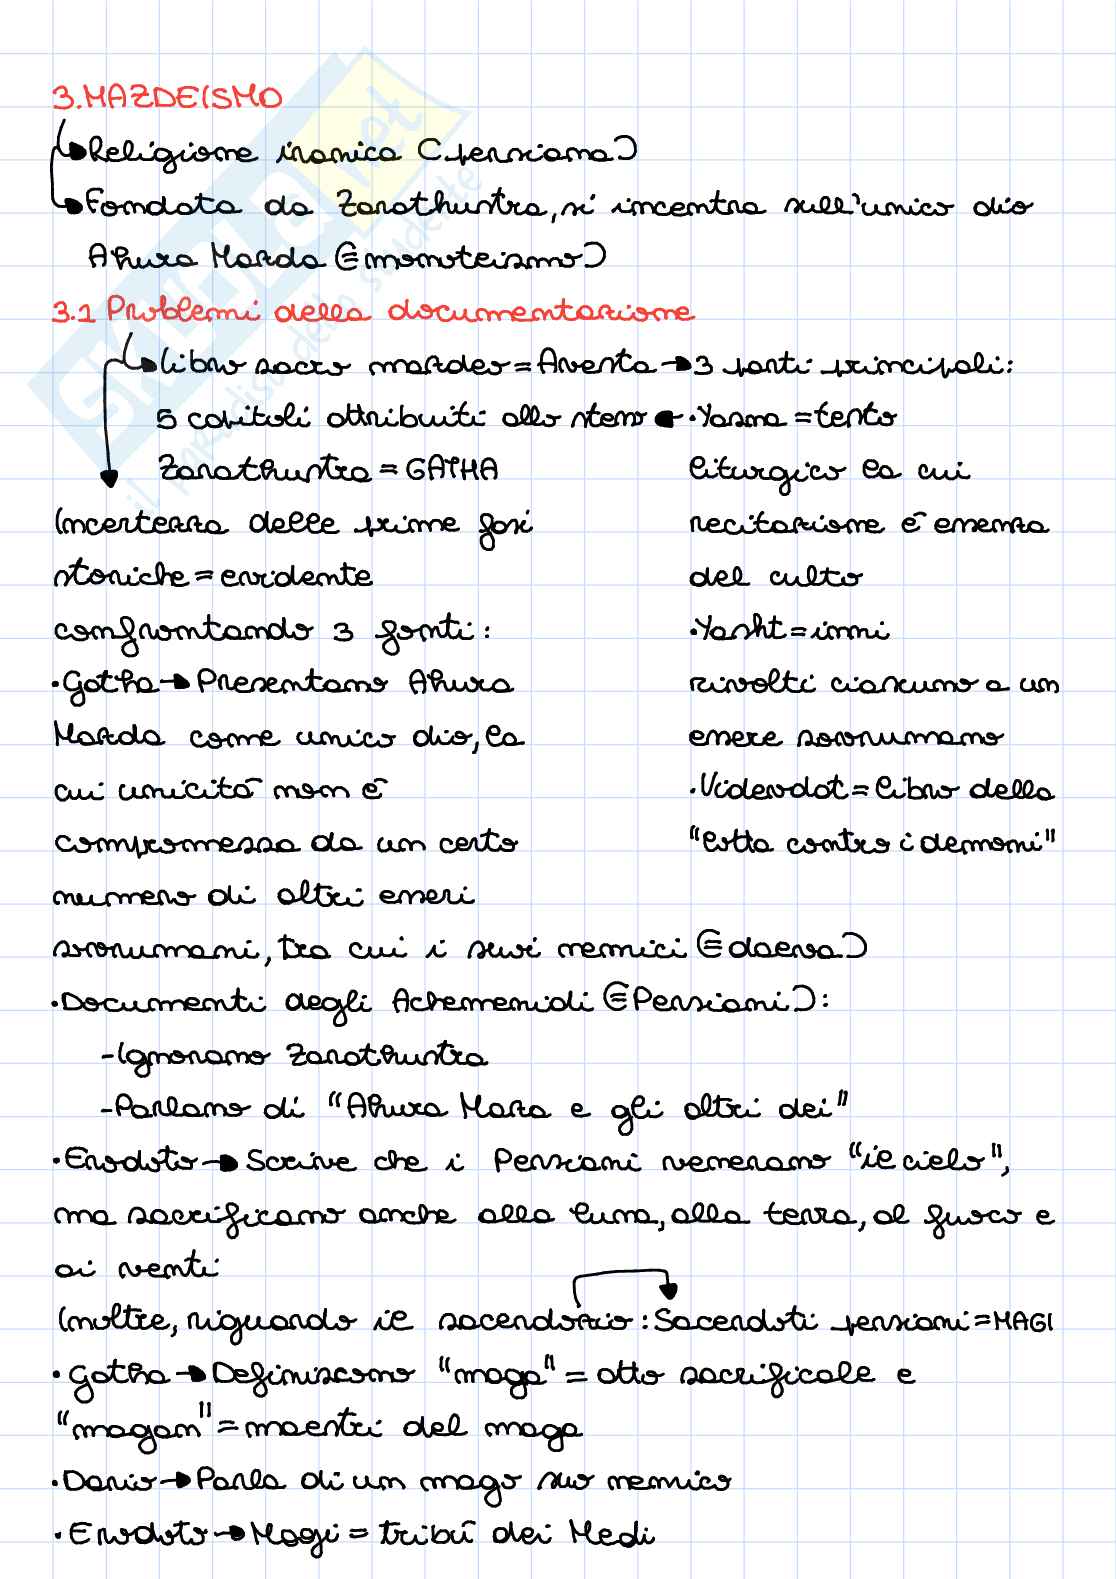 3.MAZDEISMO
Religione iranica (persiana)
Fondata da Zarathustra, si incentra sull'unico dio
Ahura Mazda (=monoteismo)
3.1 Problemi della documentazione
Libro sacro mazdeo=Avesta→3 parti principali:
5 capitoli attribuiti allo stesso ←·Yasna=testo
Zarathustra=GATHA liturgico la cui
Incertezza delle prime fasi recitazione è essenza
storiche=evidente del culto
confrontando 3 fonti: ·Yasht=inni
·Gatha→Presentano Ahura rivolti ciascuno a un
Mazda come unico dio, la essere sovrumano
cui unicità non è ·Videvdat=libro della
compromessa da un certo "lotta contro i demoni"
numero di altri esseri
sovrumani, tra cui i suoi nemici (=daeva)
·Documenti degli Achemenidi (=Persiani):
-Ignorano Zarathustra
-Parlano di "Ahura Maza e gli altri dei"
·Erodoto→Scrive che i Persiani venerano "il cielo",
ma sacrificano anche alla luna, alla terra, al fuoco e
ai venti
Inoltre, riguardo il sacerdozio: Sacerdoti persiani=MAGI
·Gatha→Definiscono "maga"=atto sacrificale e
"magan"=maestri del maga
·Dario→Parla di un mago suo nemico
·Erodoto→Magi=tribù dei Medi
skuola.net
il paradiso dello studente